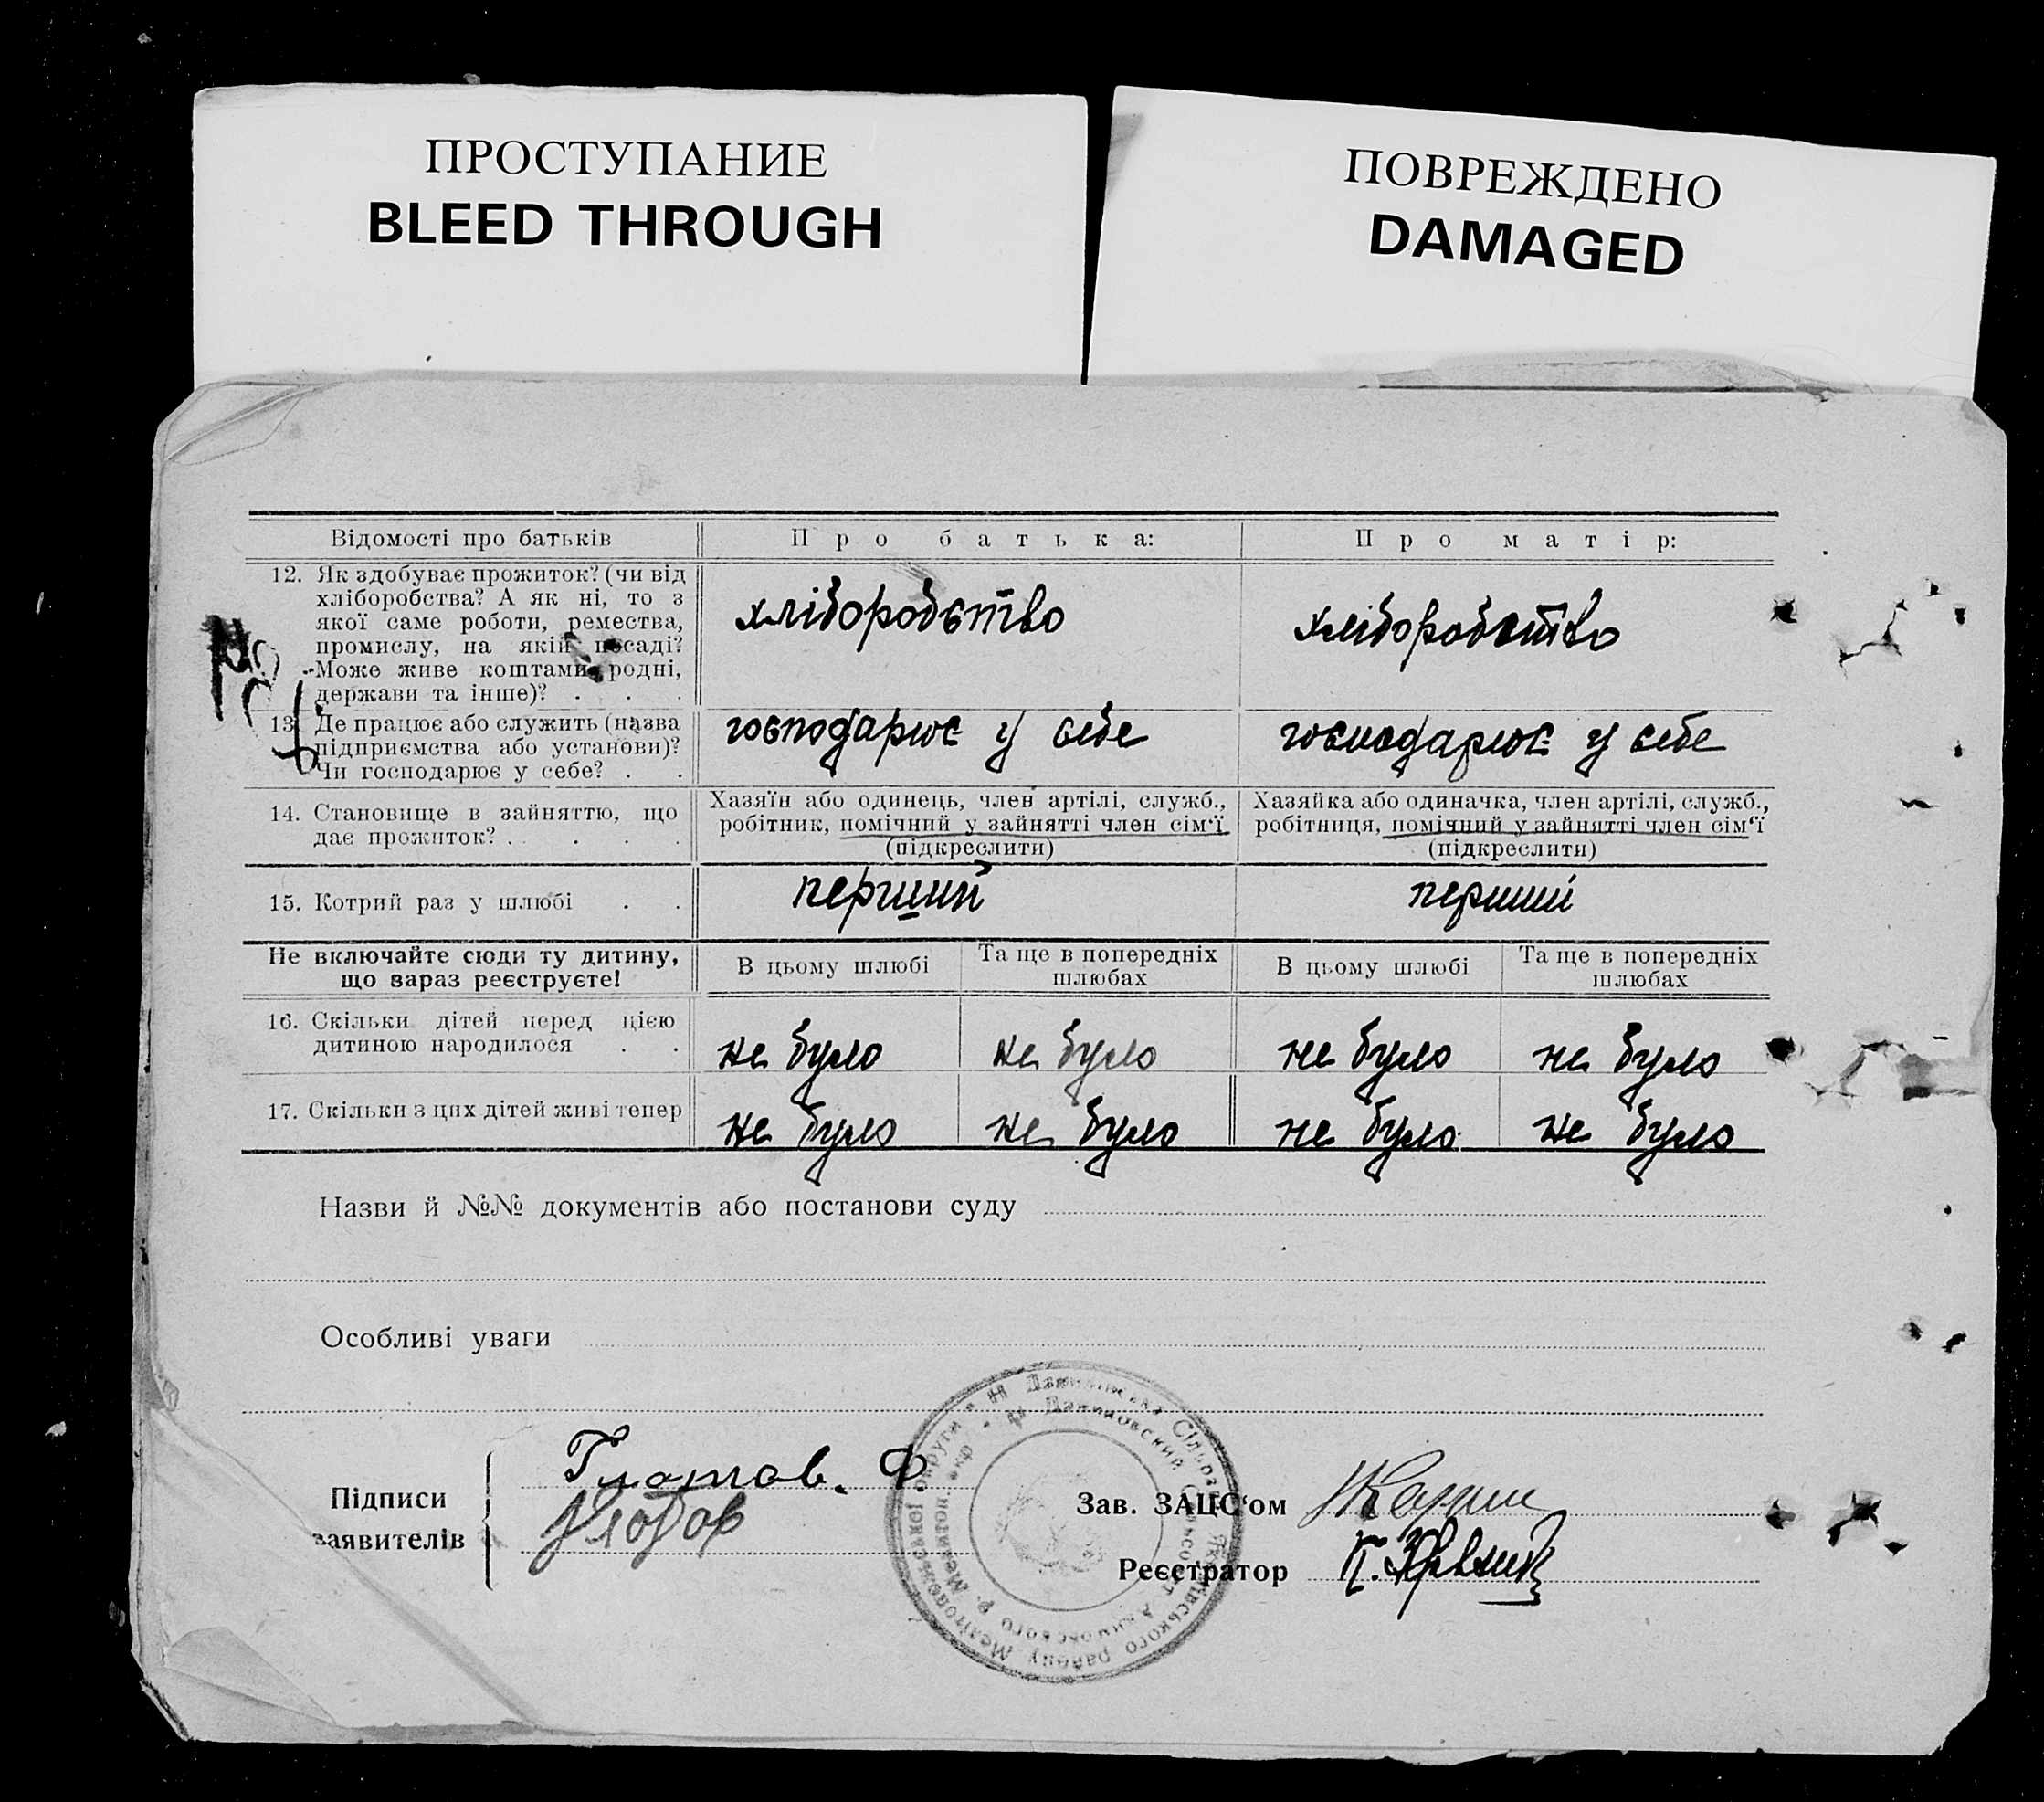 ПРОСТУПАНИЕ
BLEED THROUGH
ПОВРЕЖДЕНО
DAMAGED
Відомості про батьків Про батька: Про матір:
12. Як здобуває прожиток? (чи від
хліборобства? А як ні, то з
якої саме роботи, ремества,
промислу, на якій посаді?
Може живе коштами родні,
держави та інше)? . . .
хліборобство хліборобство
13. Де працює або служить (назва
підприємства або установи)?
Чи господарює у себе? . .
господарює у себе господарює у себе
14. Становище в зайняттю, що
дає прожиток? . . . . .
Хазяїн або одинець, член артілі, служб.,
робітник, помічний у зайнятті член сім'ї
(підкреслити)
Хазяйка або одиначка, член артілі, служб.,
робітниця, помічний у зайнятті член сім'ї
(підкреслити)
15. Котрий раз у шлюбі . . перший перший
Не включайте сюди ту дитину,
що зараз реєструєте!
В цьому шлюбі
Та ще в попередніх
шлюбах
В цьому шлюбі
Та ще в попередніх
шлюбах
16. Скільки дітей перед цією
дитиною народилося . .
не було не було не було не було
17. Скільки з цих дітей живі тепер
не було не було не було не було
Назви й №№ документів або постанови суду
Особливі уваги
Підписи
заявителів
Зав. ЗАЦС'ом
Реєстратор